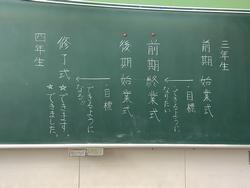 三年生
前期始業式
・目標
できるように
なりたい
前期終業式
後期始業式
・目標
できるように
なる!!
修了式
☆できます。
☆できました。
四年生